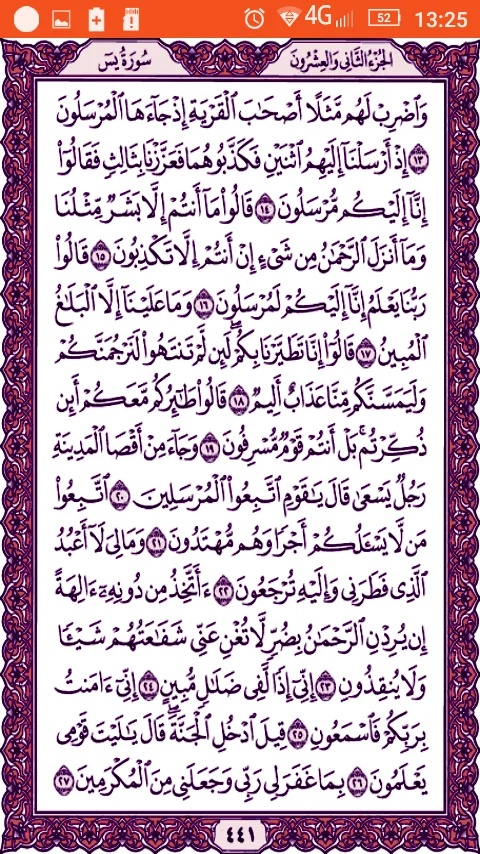 4G 52 13:25
الجزء الثاني والعشرون سورة يس
وَٱضْرِبْ لَهُم مَّثَلًا أَصْحَٰبَ ٱلْقَرْيَةِ إِذْ جَآءَهَا ٱلْمُرْسَلُونَ
١٣ إِذْ أَرْسَلْنَآ إِلَيْهِمُ ٱثْنَيْنِ فَكَذَّبُوهُمَا فَعَزَّزْنَا بِثَالِثٍ فَقَالُوٓا۟
إِنَّآ إِلَيْكُم مُّرْسَلُونَ ١٤ قَالُوا۟ مَآ أَنتُمْ إِلَّا بَشَرٌ مِّثْلُنَا
وَمَآ أَنزَلَ ٱلرَّحْمَٰنُ مِن شَىْءٍ إِنْ أَنتُمْ إِلَّا تَكْذِبُونَ ١٥ قَالُوا۟
رَبُّنَا يَعْلَمُ إِنَّآ إِلَيْكُمْ لَمُرْسَلُونَ ١٦ وَمَا عَلَيْنَآ إِلَّا ٱلْبَلَٰغُ
ٱلْمُبِينُ ١٧ قَالُوٓا۟ إِنَّا تَطَيَّرْنَا بِكُمْ ۖ لَئِن لَّمْ تَنتَهُوا۟ لَنَرْجُمَنَّكُمْ
وَلَيَمَسَّنَّكُم مِّنَّا عَذَابٌ أَلِيمٌ ١٨ قَالُوا۟ طَٰٓئِرُكُم مَّعَكُمْ ۚ أَئِن
ذُكِّرْتُم ۚ بَلْ أَنتُمْ قَوْمٌ مُّسْرِفُونَ ١٩ وَجَآءَ مِنْ أَقْصَا ٱلْمَدِينَةِ
رَجُلٌ يَسْعَىٰ قَالَ يَٰقَوْمِ ٱتَّبِعُوا۟ ٱلْمُرْسَلِينَ ٢٠ ٱتَّبِعُوا۟
مَن لَّا يَسْـَٔلُكُمْ أَجْرًا وَهُم مُّهْتَدُونَ ٢١ وَمَا لِىَ لَآ أَعْبُدُ
ٱلَّذِى فَطَرَنِى وَإِلَيْهِ تُرْجَعُونَ ٢٢ ءَأَتَّخِذُ مِن دُونِهِۦٓ ءَالِهَةً
إِن يُرِدْنِ ٱلرَّحْمَٰنُ بِضُرٍّ لَّا تُغْنِ عَنِّى شَفَٰعَتُهُمْ شَيْـًٔا
وَلَا يُنقِذُونِ ٢٣ إِنِّىٓ إِذًا لَّفِى ضَلَٰلٍ مُّبِينٍ ٢٤ إِنِّىٓ ءَامَنتُ
بِرَبِّكُمْ فَٱسْمَعُونِ ٢٥ قِيلَ ٱدْخُلِ ٱلْجَنَّةَ ۖ قَالَ يَٰلَيْتَ قَوْمِى
يَعْلَمُونَ ٢٦ بِمَا غَفَرَ لِى رَبِّى وَجَعَلَنِى مِنَ ٱلْمُكْرَمِينَ ٢٧
٤٤١